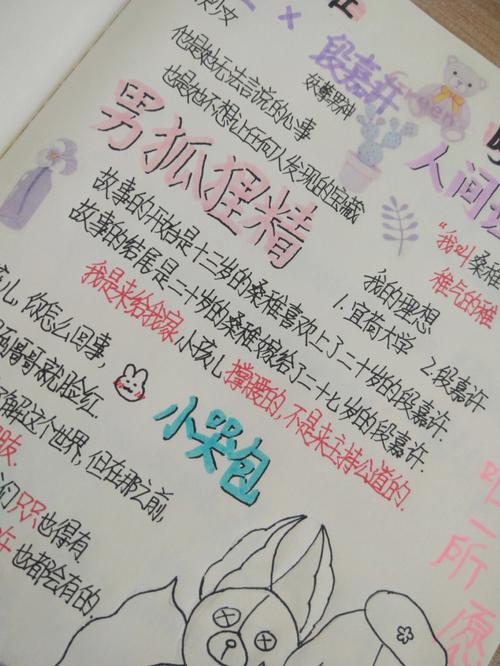 少女 × 段嘉许
妖孽男神
他是她无法言说的心事
也是她不想让任何人发现的宝藏
男狐狸精
人间
故事的开始是十三岁的桑稚喜欢上了二十岁的段嘉许.
故事的结尾是二十岁的桑稚嫁给了二十七岁的段嘉许.
我是来给我家小孩儿撑腰的,不是来主持公道的.
"我叫桑稚
稚气的稚
我的理想
1.宜荷大学 2.段嘉许
儿,你怎么回事,
哥哥就脸红
小哭包
了解这个世界,但在那之前,
也得有
也都会有的.
唯一所愿